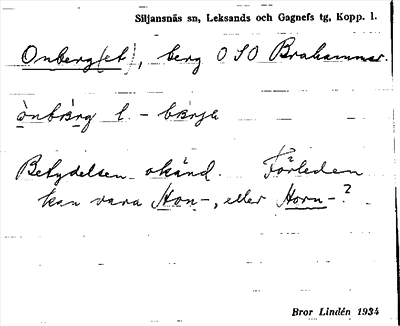 Siljansnäs sn, Leksands och Gagnefs tg, Kopp. l.
Onberg(et), berg OSO Brahammar.
ònbä̀rg l. - bärjä
Betydelsen okänd. Förleden
kan vara Hon-, eller Horn-?
Bror Lindén 1934